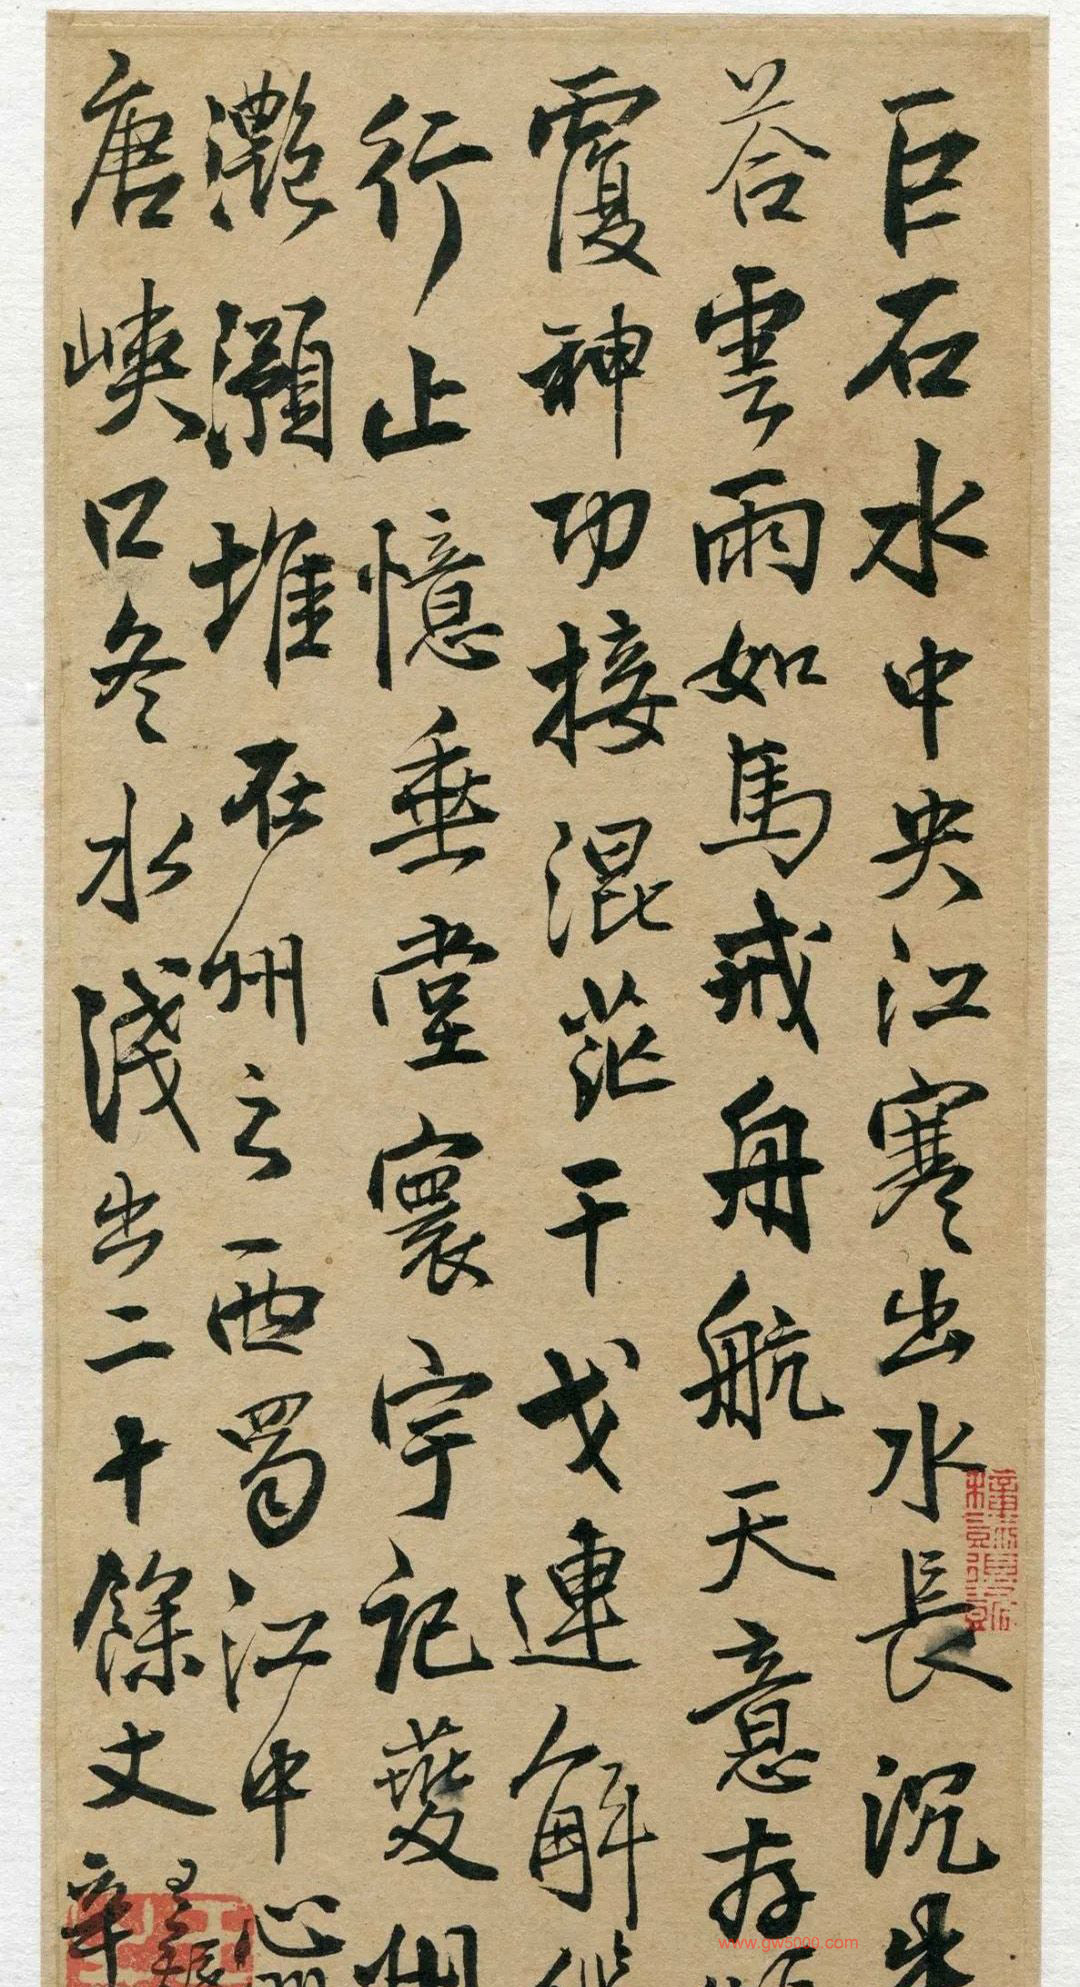 巨石水中央江寒出水長沉牛
荅雲雨如馬戒舟航天意存傾
覆神功接混茫干戈連解纜
行止憶垂堂寰宇記夔州
灩澦堆在州之西蜀江中心
瞿唐峽口冬水淺出二十餘丈
www.gw5000.com